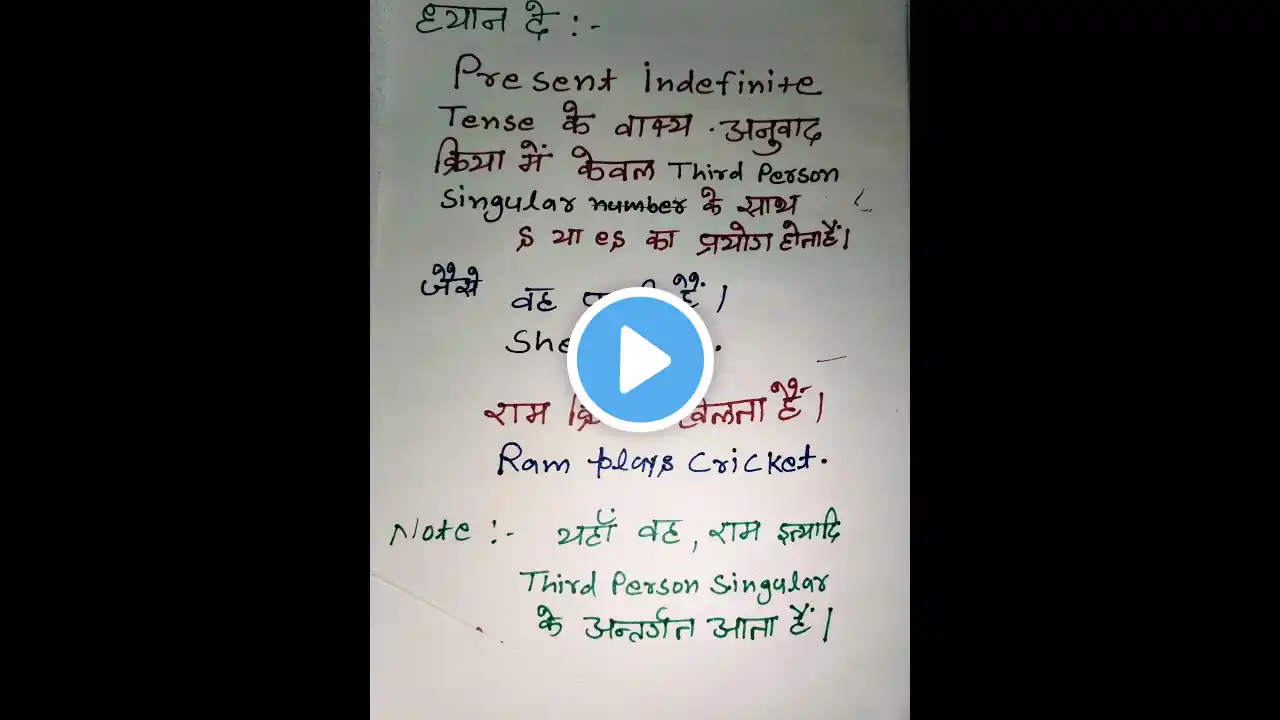 ध्यान दे :-
Present indefinite
Tense के वाक्य . अनुवाद
क्रिया में केवल Third Person
Singular number के साथ
s या es का प्रयोग होता हैं।
जैसे वह हैं।
She
राम खेलता हैं।
Ram plays Cricket.
Note :- यहाँ वह, राम इत्यादि
Third Person Singular
के अन्तर्गत आता हैं।